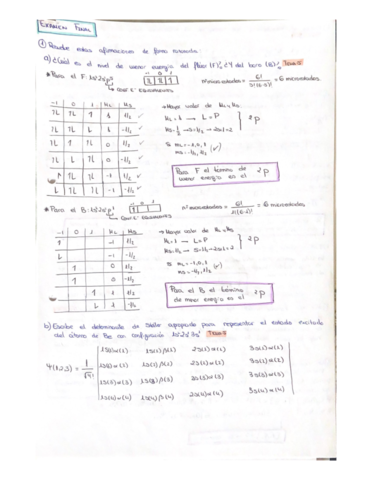 EXAMEN FINAL
① Resuelve estas afirmaciones de forma razonada:
a) ¿Cuál es el nivel de menor energía del flúor (F)? ¿Y del boro (B)? Tema 8
* Para el F: 1s²2s²p⁵
-1 0 1
nº microestados = 6! = 6 microestados
-1 0 1 ML MS
↑↓ ↑↓ ↑ 1 1/2 ✓
↑↓ ↑↓ ↓ 1 -1/2 ✓
↑↓ ↑ ↑↓ 0 1/2 ✓
↑↓ ↓ ↑↓ 0 -1/2 ✓
↑ ↑↓ ↑↓ -1 1/2 ✓
↓ ↑↓ ↑↓ -1 -1/2 ✓
→ Mayor valor de ML y MS
ML=1 → L=P
MS=1/2 → S=1/2 → 2S+1=2
²P
Si mL=-1,0,1
ms=-1/2,1/2 (✓)
Para F el término de menor energía es el ²P
* Para el B: 1s²2s²p¹
-1 0 1
nº microestados = 6! = 6 microestados
-1 0 1 ML MS
↑ -1 1/2
↓ -1 -1/2
↑ 0 1/2
↓ 0 -1/2
↑ 1 1/2
↓ 1 -1/2
→ Mayor valor de ML y MS
ML=1 → L=P
²P
Si mL=-1,0,1
ms=-1/2,1/2 (✓)
Para el B el término de menor energía es el ²P
b) Escribe el determinante de Slater apropiado para representar el estado excitado
del átomo de Be con configuración 1s²2s¹3s¹ Tema 8
1s(1)α(1) 1s(1)β(1) 2s(1)α(1) 3s(1)α(1)
1s(2)α(2) 1s(2)β(2) 2s(2)α(2) 3s(2)α(2)
1s(3)α(3) 1s(3)β(3) 2s(3)α(3) 3s(3)α(3)
1s(4)α(4) 1s(4)β(4) 2s(4)α(4) 3s(4)α(4)